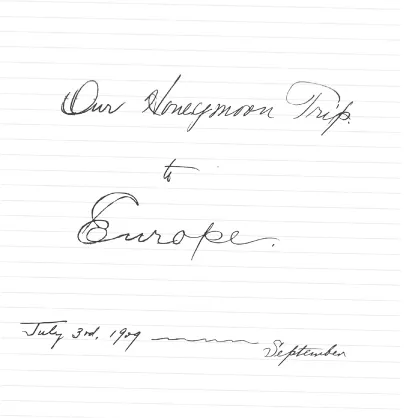 Our Honeymoon Trip.
to
Europe.
July 3rd, 1909 ——— September